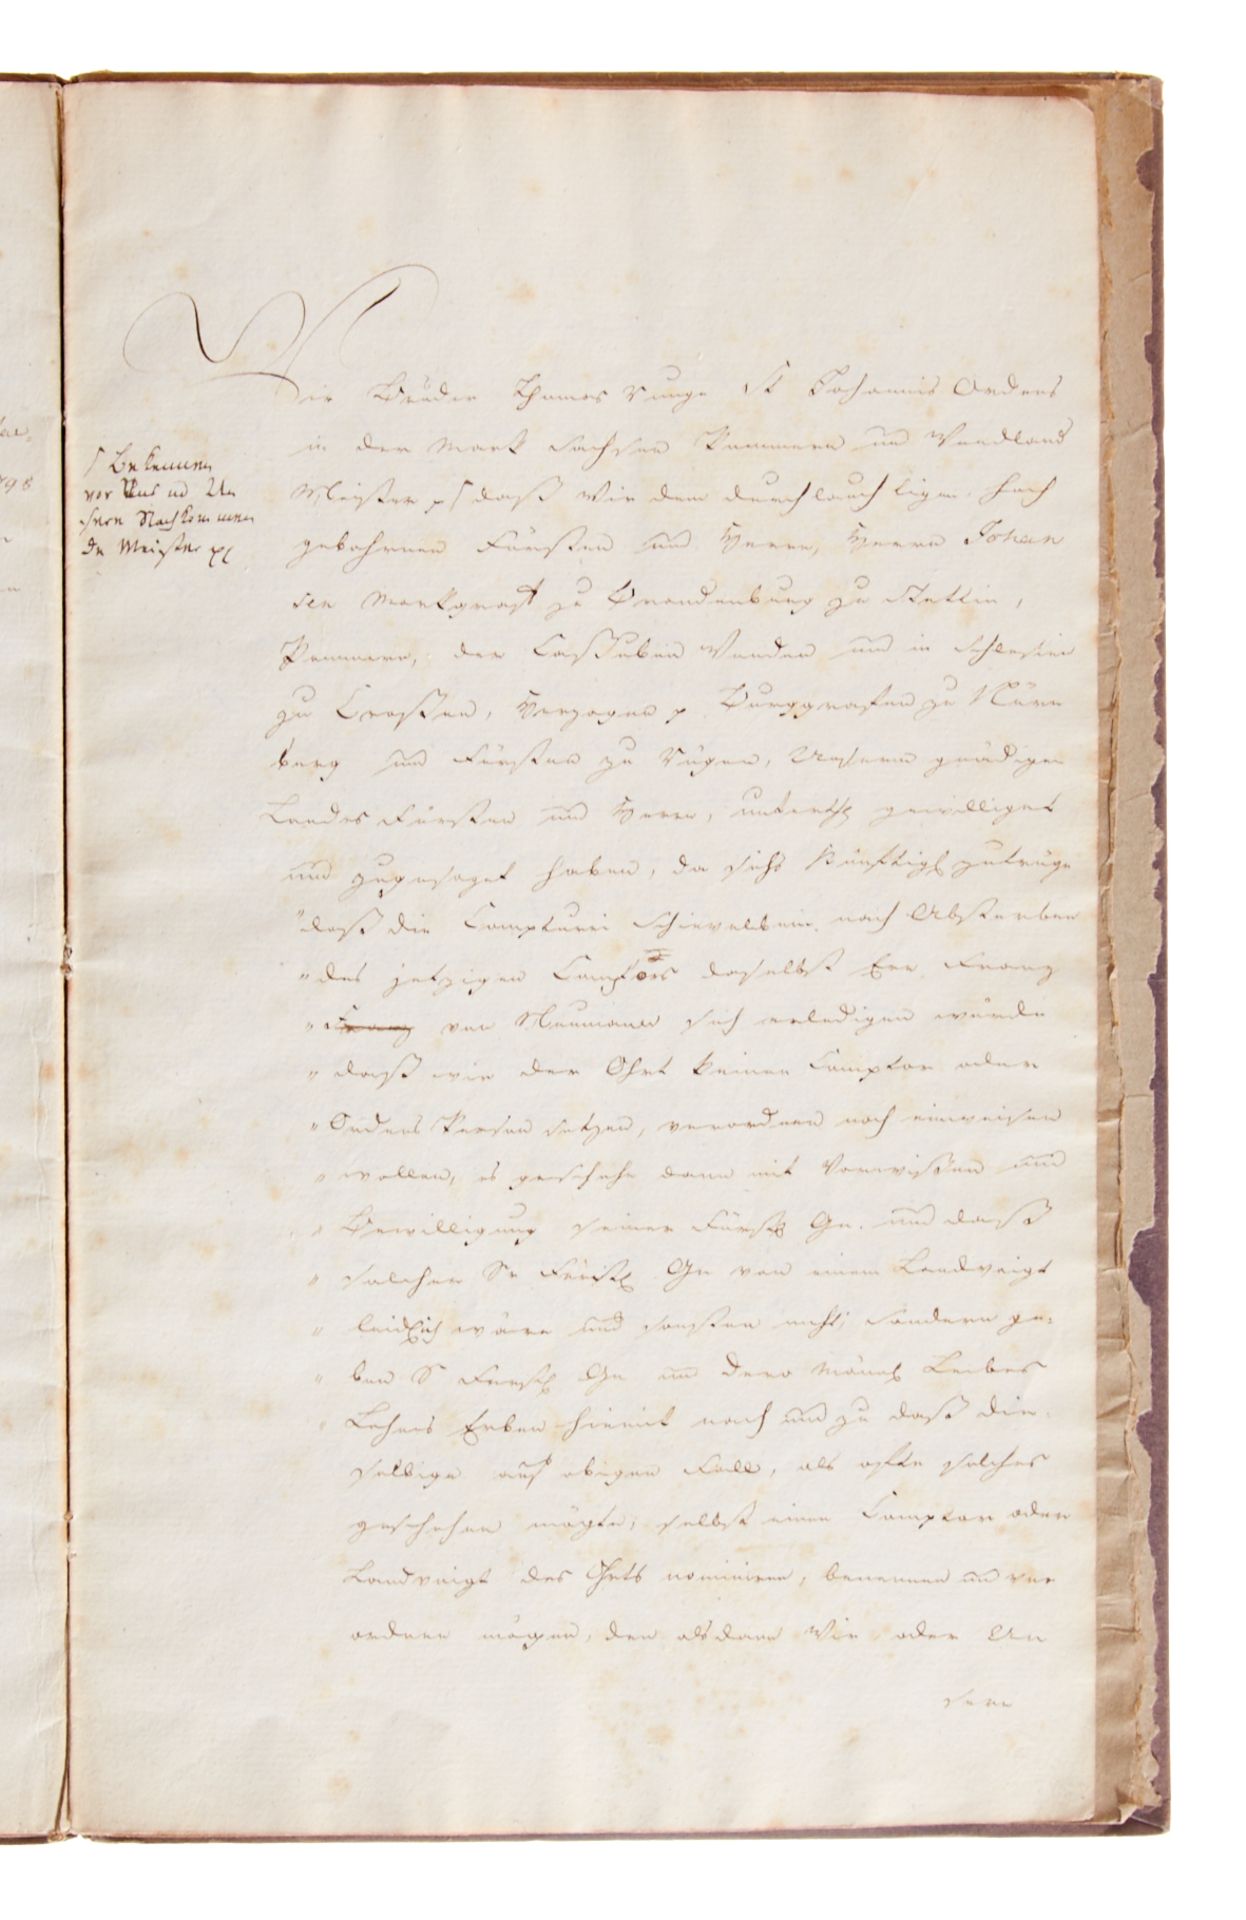 Wir Bruder Thomas Runge St Johannis Ordens
in der Mark Sachsen Pommern un Wendland
Meister p daß Wir dem durchlauchtigen, Hoch
gebohrnen Fürsten und Herrn, Herrn Johan
sen Markgraff zu Brandenburg zu Stettin,
Pommern, der Caßuben Wenden und in Schlesien
zu Croßen, Herzogen p Burggrafen zu Nürn
berg und Fürsten zu Rügen, Unserm gnädigen
Landes Fürsten und Herrn, unterth gewilliget
und zugesaget haben, da sichs künftigl zutrüge
" daß die Compturei Schievelbein nach Absterben
" des jetzigen Comptors daselbst Ern Franz
" Franz von Neumann sich erledigen würde
" daß wir der Ohrt keinen Comptor oder
" Ordens Person setzen, verordnen noch einweisen
" wollen, es geschehe dann mit Vorwißen und
" Bewilligung seiner Fürstl Gn. und daß
" solcher Sr Fürstl Gn von einem Landvoigt
" leidlich wäre und sonsten nicht, sondern ge-
" ben S Fürstl Gn un dero Mänl Leibes
" Lehns Erben hiemit nach und zu daß die-
selbige auf obigen Fall, als ofte solches
geschehen mögte, selbst einen Comptor oder
Landvoigt des Ohrts nominiren, benennen un ver
ordnen mögen, den alsdann Wir oder Un
sere
/ Bekennen
vor Uns und Un
sere Nachkommen
de Meister pp